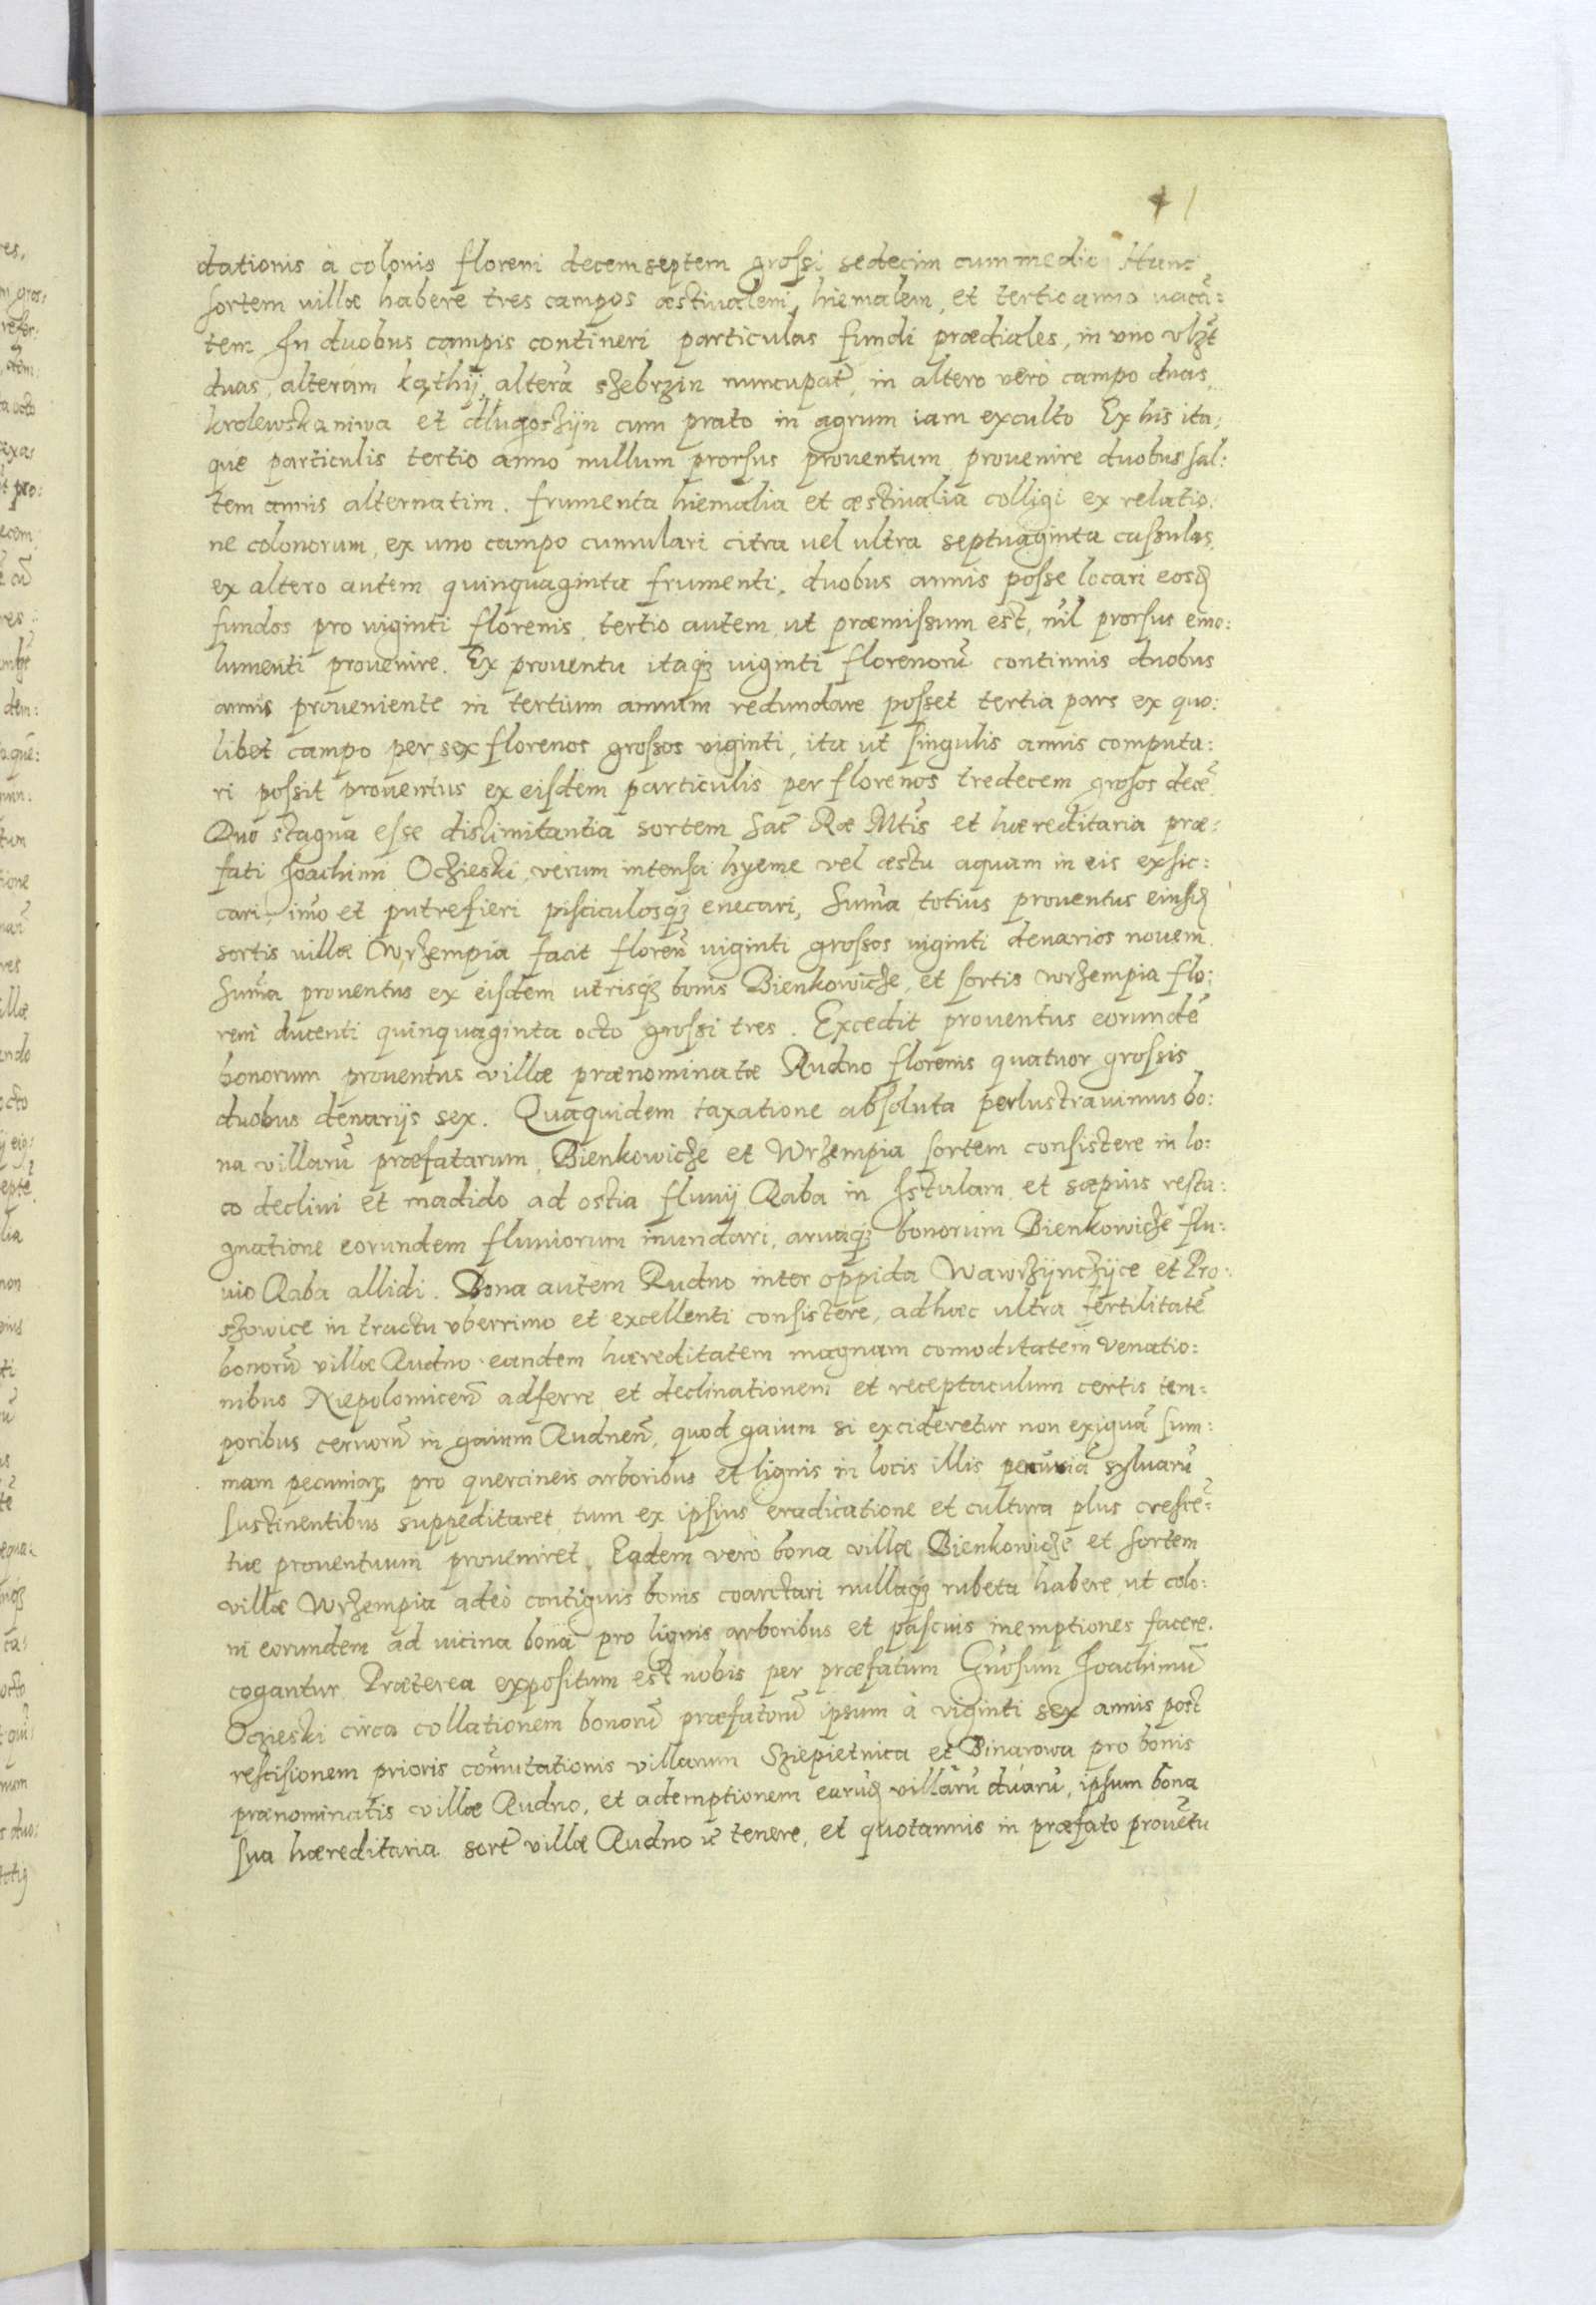 41
dationis à colonis floreni decemseptem grossi sedecim cum medio Hanc
sortem villæ habere tres campos æstivalem, hiemalem, et tertio anno vacā:
tem In duobus campis contineri particulas fundi prædiales, in vno vlzt
duas, alteram kąthij, alterā szebrzin nuncupatē, in altero verò campo duas,
krolewska niwa et dlugoszijn cum prato in agrum iam exculto Ex his ita:
que particulis tertio anno nullum prorsus prouentum prouenire duobus sal:
tem annis alternatim. frumenta hiemalia et æstiualia colligi ex relatio:
ne colonorum, ex uno campo cumulari citra uel ultra septuaginta cassulas,
ex altero autem quinquaginta frumenti. duobus annis posse locari eosđ
fundos pro uiginti florenis, tertio autem, ut præmissum est, nil prorsus emo:
lumenti prouenire. Ex prouentu itaqʒ uiginti florenorū continuis duobus
annis proueniente in tertium annum redundare posset tertia pars ex quo:
libet campo per sex florenos grossos viginti, ita ut singulis annis computa:
ri possit prouentus ex eisdem particulis per florenos tredecem grosos decē
Duo stagna esse dislimitantia sortem Sac̄ Ræ Mtis et hæreditaria præ:
fati Joachimi Oczieski, verum intensa hyeme vel æstu aquam in eis exsic:
cari, imò et putrefieri pisciculosqʒ enecari, Suma totius prouentus eiusđ
sortis villæ Wrzempia facit floreñ uiginti grossos uiginti denarios nouem.
Suma prouentus ex eisdem utrisqʒ bonis Bienkowicze, et sortis wrzempia flo:
reni ducenti quinquaginta octo grossi tres. Excedit prouentus eorundē
bonorum prouentus villæ prænominatæ Rudno florenis quatuor grossis
duobus denarijs sex. Quaquidem taxatione absoluta perlustrauimus bo:
na villarū præfatarum, Bienkowicze et Wrzempia sortem consistere in lo:
co decliui et madido ad ostia fluuij Raba in Istulam, et sæpius resta:
gnatione eorundem fluuiorum inundari, aruaqʒ bonorum Bienkowicze flu:
uio Raba allidi. Bona autem Rudno inter oppida Wawrzijnczijce et Pro:
szowice in tractu vberrimo et excellenti consistere, adhæc ultra fertilitatē
bonorū villæ Rudno eandem hæreditatem magnam comoditatem Venatio:
nibus Niepolomiceñ adferre et declinationem et receptaculum certis tem:
poribus ceruorū in gaium Rudneñ, quod gaium si excideretur non exiguā sum:
mam pecuniaꝝ pro quercineis arboribus et lignis in locis illis penuriā syluarū
sustinentibus suppeditaret, tum ex ipsius eradicatione et cultura plus crescē:
tiæ prouentuum proueniret. Eadem verò bona villæ Bienkowicze et sortem
villæ Wrzempia adeò contiguis bonis coarctari nullaqʒ rubeta habere, ut colo:
ni eorundem ad uicina bona pro lignis arboribus et pascuis inemptiones facere.
cogantur. Præterea expositum est nobis per præfatum Gñosum Joachimū
Oczieski circa collationem bonorū præfatorū ipsum à viginti sex annis post
rescisionem prioris com̄utationis villarum Sziepietnica et Binarowa pro bonis
prænominatis villæ Rudno, et ademptionem earūđ villarū duarū, ipsum bona
sua hæreditaria sortē villæ Rudno tenere, et quotannis in præfato prouētu